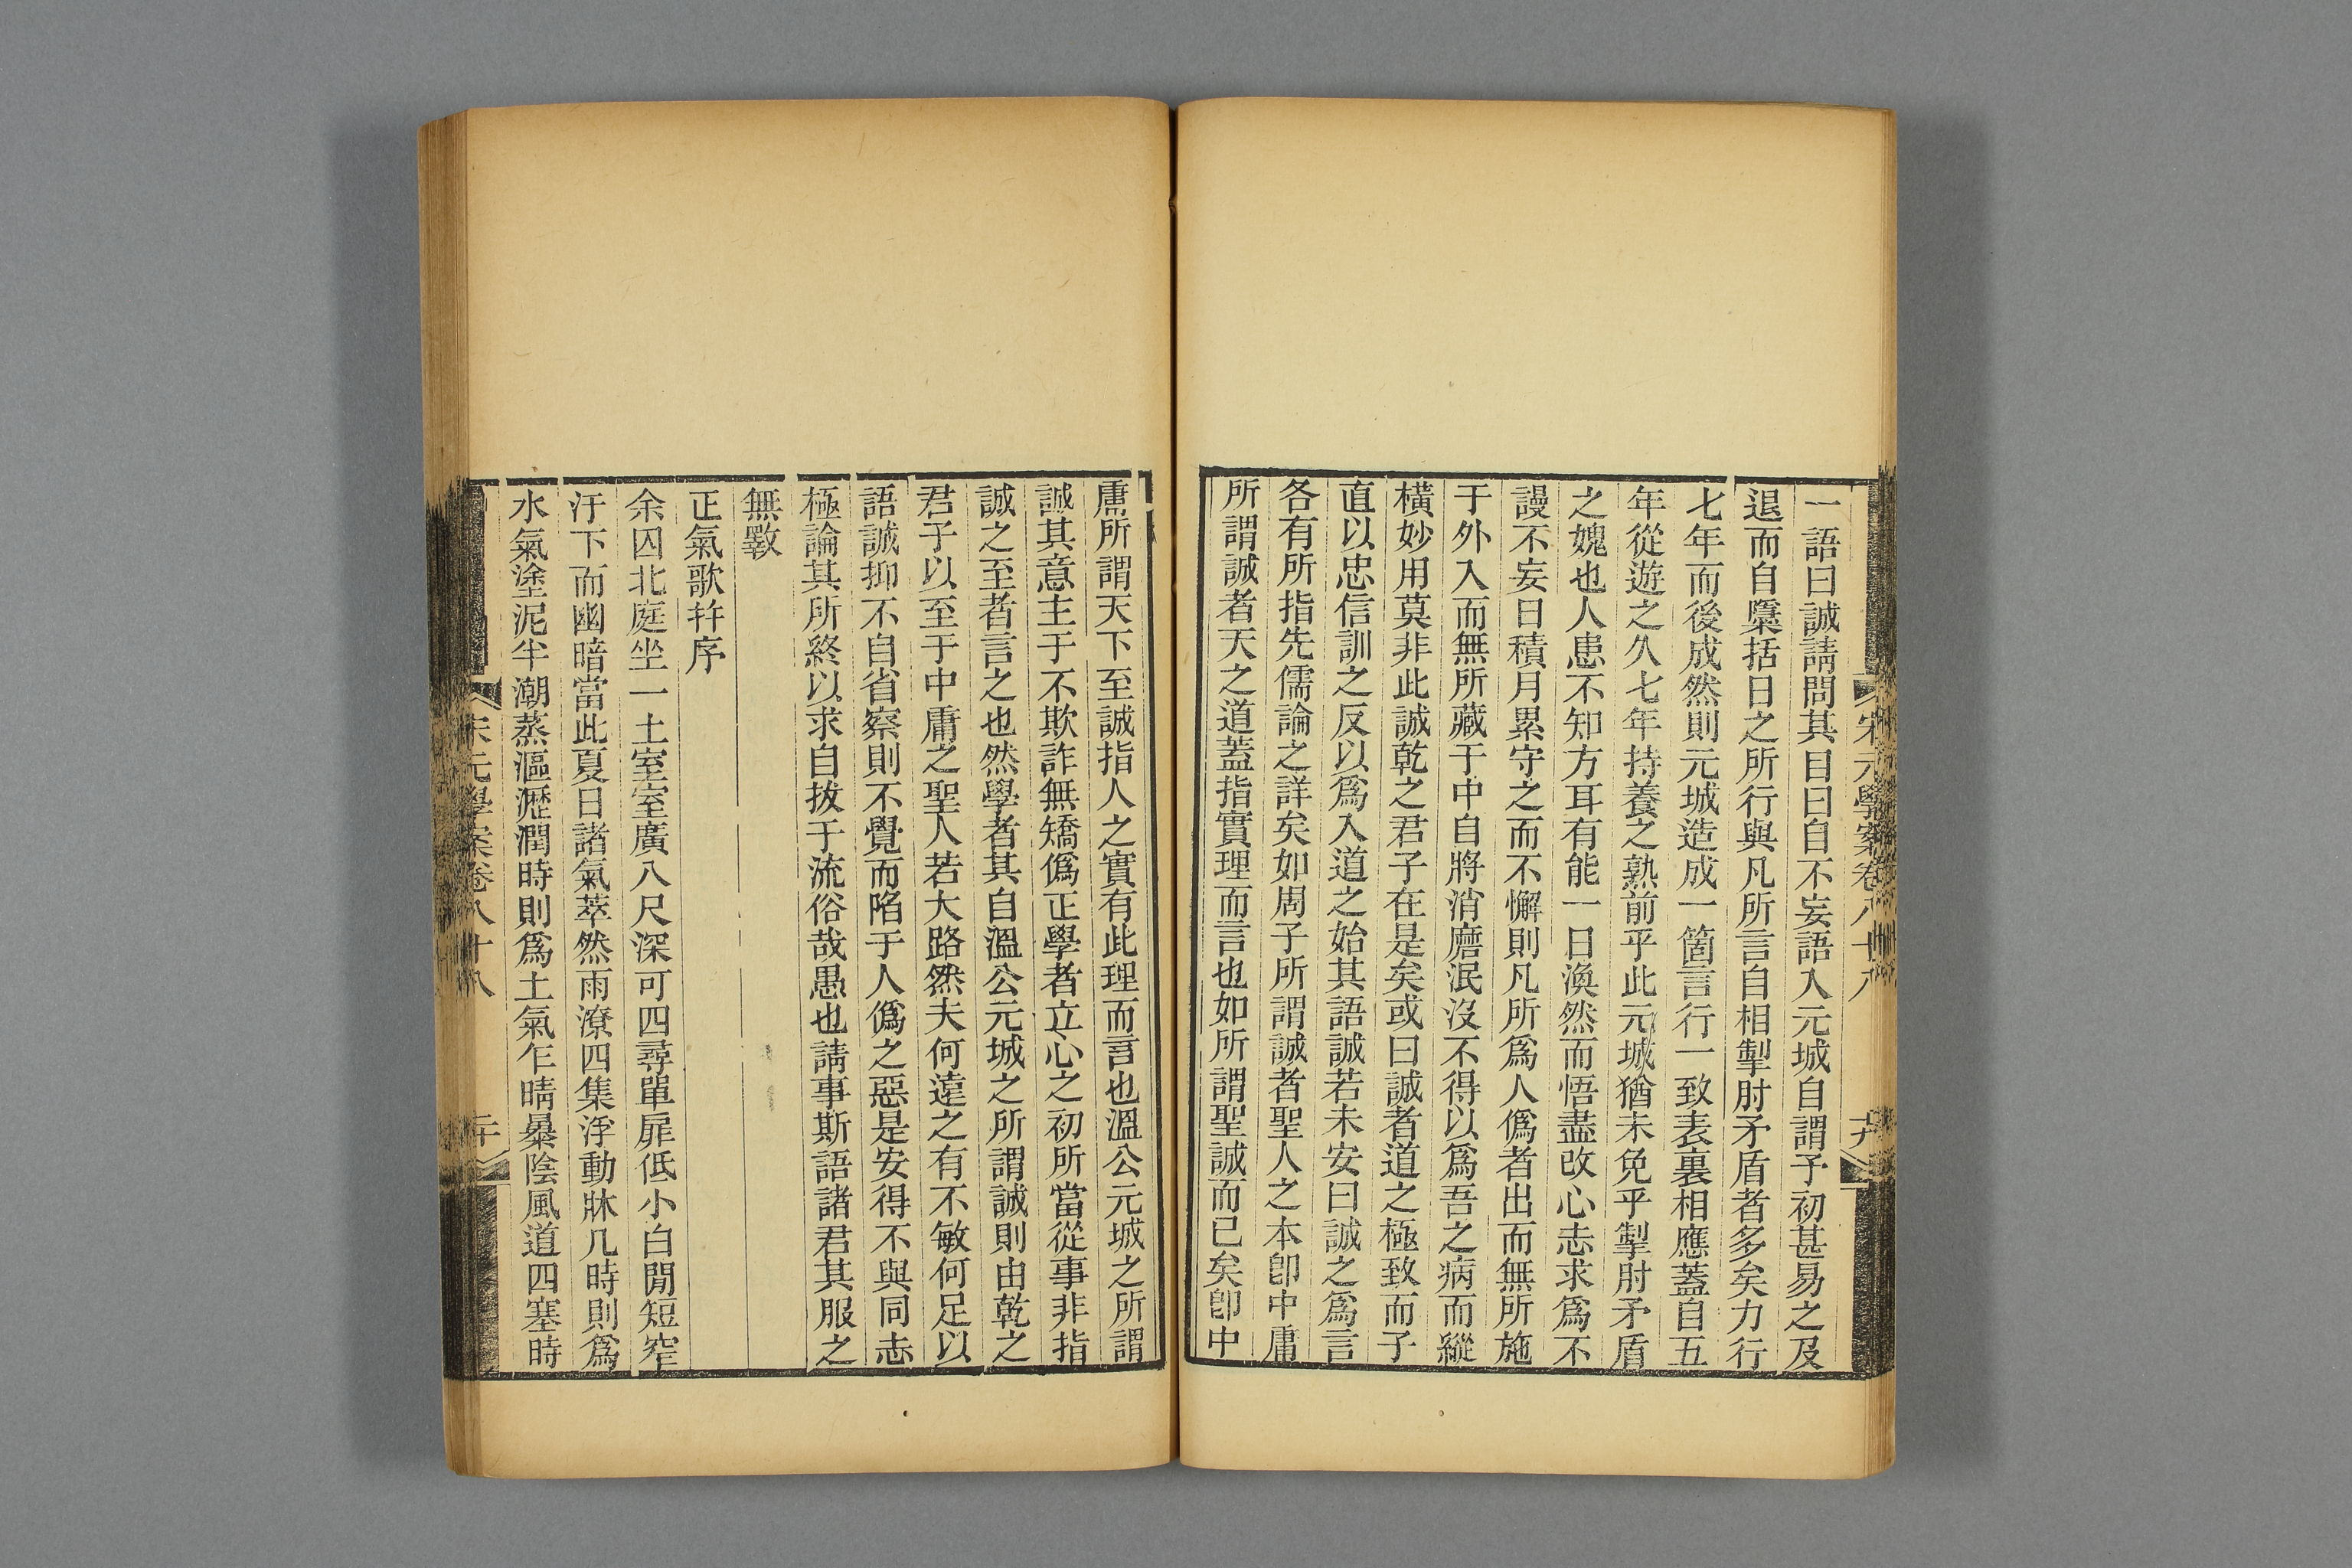 宋元學案卷八十八
十九
一語曰誠請問其目曰自不妄語入元城自謂予初甚易之及
退而自檃括日之所行與凡所言自相掣肘矛盾者多矣力行
七年而後成然則元城造成一箇言行一致表裏相應蓋自五
年從遊之久七年持養之熟前乎此元城猶未免乎掣肘矛盾
之媿也人患不知方耳有能一日渙然而悟盡改心志求爲不
謾不妄日積月累守之而不懈則凡所爲人僞者出而無所施
于外入而無所藏于中自將消磨泯沒不得以爲吾之病而縱
橫妙用莫非此誠乾之君子在是矣或曰誠者道之極致而子
直以忠信訓之反以爲入道之始其語誠若未安曰誠之爲言
各有所指先儒論之詳矣如周子所謂誠者聖人之本卽中庸
所謂誠者天之道蓋指實理而言也如所謂聖誠而已矣卽中
庸所謂天下至誠指人之實有此理而言也溫公元城之所謂
誠其意主于不欺詐無矯僞正學者立心之初所當從事非指
誠之至者言之也然學者其自溫公元城之所謂誠則由乾之
君子以至于中庸之聖人若大路然夫何遠之有不敏何足以
語誠抑不自省察則不覺而陷于人僞之惡是安得不與同志
極論其所終以求自拔于流俗哉愚也請事斯語諸君其服之
無斁
正氣歌幷序
余囚北庭坐一土室室廣八尺深可四尋單扉低小白閒短窄
汙下而幽暗當此夏日諸氣萃然雨潦四集浮動牀几時則爲
水氣塗泥半潮蒸漚瀝潤時則爲土氣乍晴暴陰風道四塞時
宋元學案卷八十八
二十